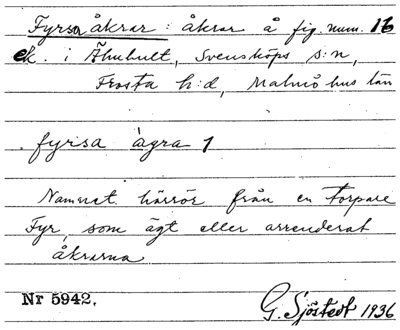 Fyrsa åkrar: åkrar å fig. num. 16
ek. i Åhuhult, Svensköps s:n,
Frosta h:d, Malmöhus län
fyrsa àgra 1
Namnet härrör från en torpare
Fyr, som ägt eller arrenderat
åkrarna
Nr 5942.
G. Sjöstedt 1936